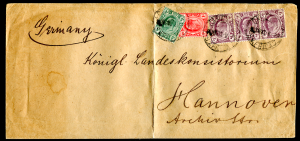 Germany
Königl Landeskonsistorium
Hannover
Archiv Str.